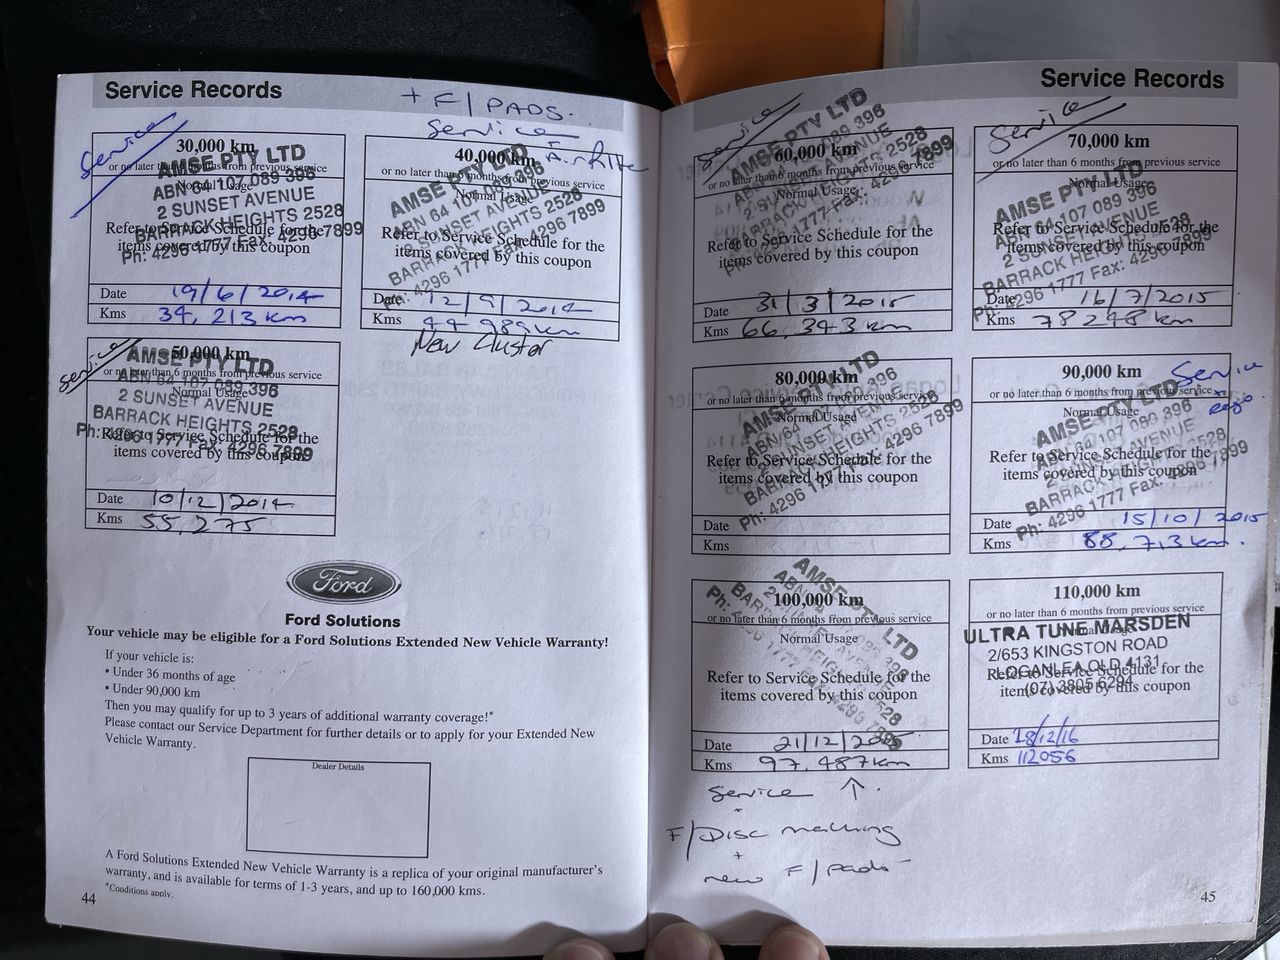 Service Records
+ F/PADS.
Service
+ Air Filte
Service
30,000 km
or no later than 6 months from previous service
Normal Usage
Refer to Service Schedule for the
items covered by this coupon
AMSE PTY LTD
ABN 64 107 089 396
2 SUNSET AVENUE
BARRACK HEIGHTS 2528
Ph: 4296 1777 Fax: 4296 7899
Date 19/6/2014
Kms 34,213km
40,000 km
or no later than 6 months from previous service
Normal Usage
Refer to Service Schedule for the
items covered by this coupon
AMSE PTY LTD
ABN 64 107 089 396
2 SUNSET AVENUE
BARRACK HEIGHTS 2528
Ph: 4296 1777 Fax: 4296 7899
Date 12/9/2014
Kms 44 989km
New Cluster
Service
50,000 km
or no later than 6 months from previous service
Normal Usage
Refer to Service Schedule for the
items covered by this coupon
AMSE PTY LTD
ABN 64 107 089 396
2 SUNSET AVENUE
BARRACK HEIGHTS 2528
Ph: 4296 1777 Fax: 4296 7899
Date 10/12/2014
Kms 55,275
Ford
Ford Solutions
Your vehicle may be eligible for a Ford Solutions Extended New Vehicle Warranty!
If your vehicle is:
• Under 36 months of age
• Under 90,000 km
Then you may qualify for up to 3 years of additional warranty coverage!*
Please contact our Service Department for further details or to apply for your Extended New
Vehicle Warranty.
Dealer Details
A Ford Solutions Extended New Vehicle Warranty is a replica of your original manufacturer's
warranty, and is available for terms of 1-3 years, and up to 160,000 kms.
*Conditions apply.
44
Service Records
Service
60,000 km
or no later than 6 months from previous service
Normal Usage
Refer to Service Schedule for the
items covered by this coupon
AMSE PTY LTD
ABN 64 107 089 396
2 SUNSET AVENUE
BARRACK HEIGHTS 2528
Ph: 4296 1777 Fax: 4296 7899
Date 31/3/2015
Kms 66,343km
Service
70,000 km
or no later than 6 months from previous service
Normal Usage
Refer to Service Schedule for the
items covered by this coupon
AMSE PTY LTD
ABN 64 107 089 396
2 SUNSET AVENUE
BARRACK HEIGHTS 2528
Ph: 4296 1777 Fax: 4296 7899
Date 16/7/2015
Kms 78248km
80,000 km
or no later than 6 months from previous service
Normal Usage
Refer to Service Schedule for the
items covered by this coupon
AMSE PTY LTD
ABN 64 107 089 396
2 SUNSET AVENUE
BARRACK HEIGHTS 2528
Ph: 4296 1777 Fax: 4296 7899
Date
Kms
Service
+ rego.
90,000 km
or no later than 6 months from previous service
Normal Usage
Refer to Service Schedule for the
items covered by this coupon
AMSE PTY LTD
ABN 64 107 089 396
2 SUNSET AVENUE
BARRACK HEIGHTS 2528
Ph: 4296 1777 Fax: 4296 7899
Date 15/10/2015
Kms 88,713km.
100,000 km
or no later than 6 months from previous service
Normal Usage
Refer to Service Schedule for the
items covered by this coupon
AMSE PTY LTD
ABN 64 107 089 396
2 SUNSET AVENUE
BARRACK HEIGHTS 2528
Ph: 4296 1777 Fax: 4296 7899
Date 21/12/2015
Kms 97,487km
Service ↑.
+
F/Disc maching
+
new F/pads
110,000 km
or no later than 6 months from previous service
Normal Usage
Refer to Service Schedule for the
items covered by this coupon
ULTRA TUNE MARSDEN
2/653 KINGSTON ROAD
LOGANLEA QLD 4131
(07) 3805 6294
Date 18/12/16
Kms 112056
45